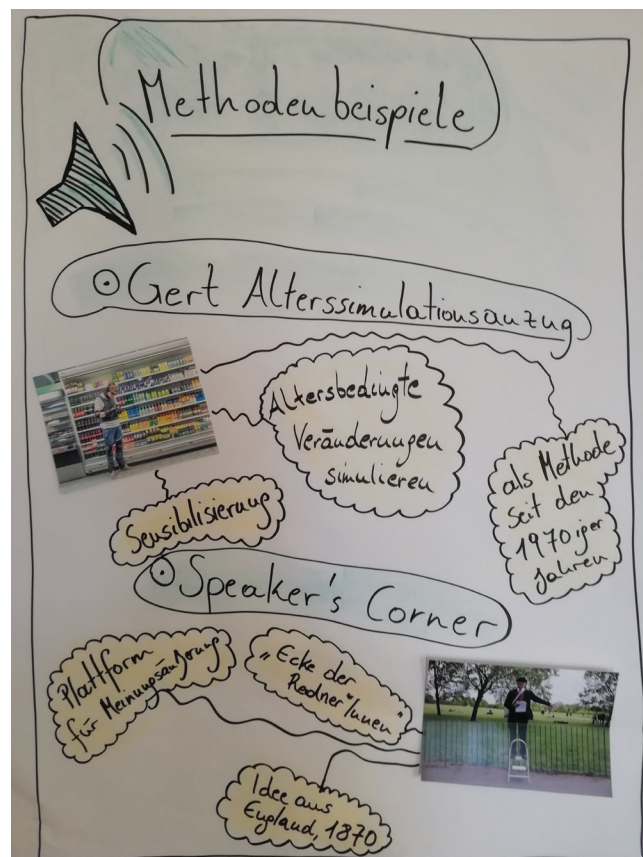 Methodenbeispiele
Gert Alterssimulationsanzug
Altersbedingte
Veränderungen
simulieren
als Methode
seit den
1970iger
Jahren
Sensibilisierung
Speaker's Corner
Plattform
für Meinungsäußerung
„Ecke der
Redner*Innen"
Idee aus
England, 1870